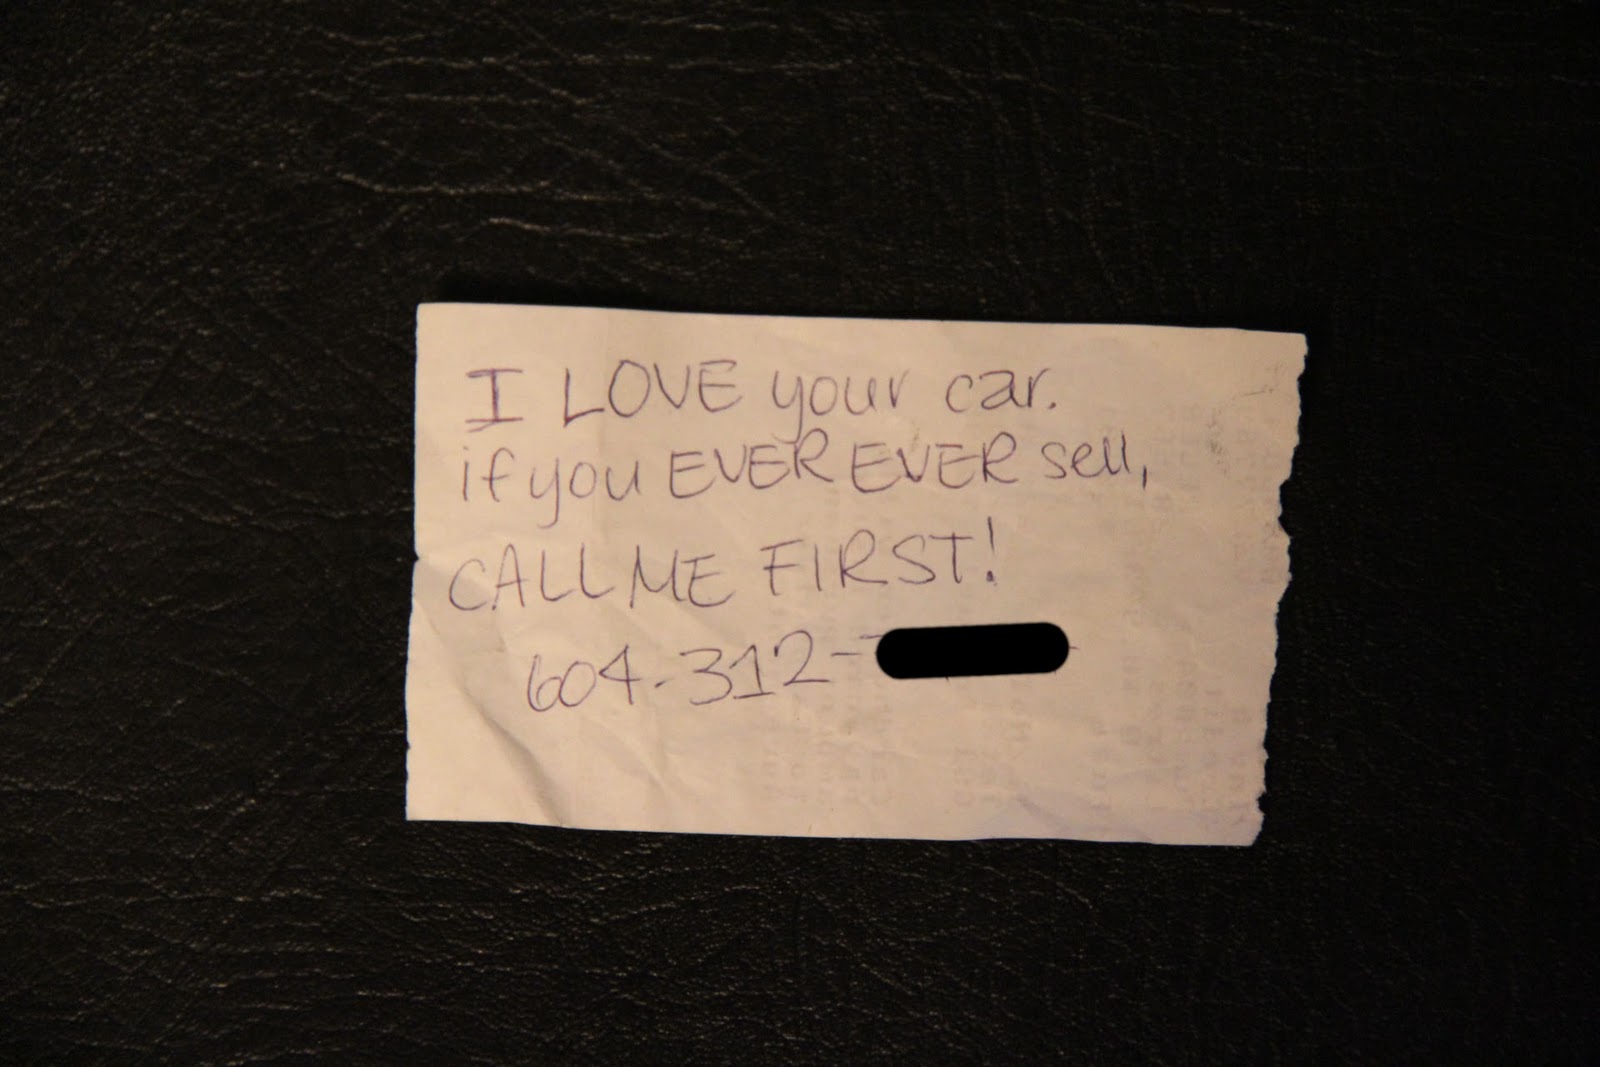 I LOVE your car.
if you EVER EVER sell,
CALL ME FIRST!
604-312-